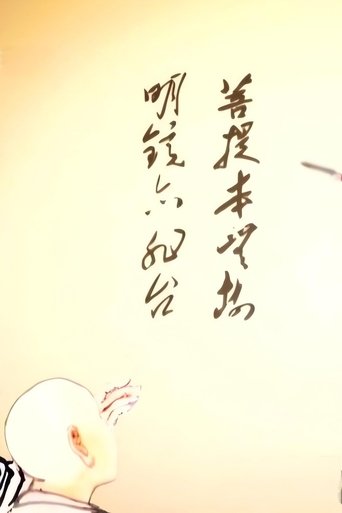 菩提本無树
明镜亦非台